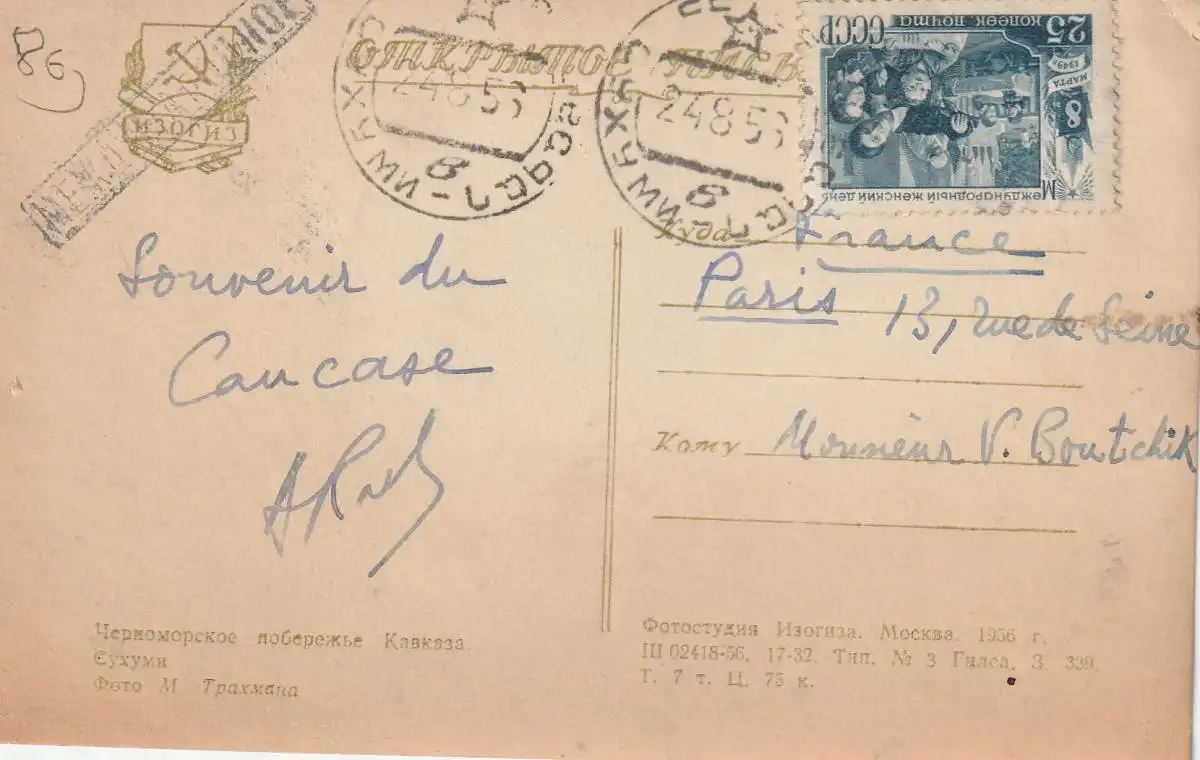 86
ИЗОГИЗ
ОТКРЫТОЕ
24856
24856
МЕЖДУНАРОДНЫЙ ЖЕНСКИЙ ДЕНЬ
8
МАРТА
1949
25
КОПЕЕК ПОЧТА
СССР
Souvenir du
Caucase
Куда France
Paris 13, rue de Seine
Кому Monsieur V. Boutchik
Черноморское побережье Кавказа.
Сухуми
Фото М Трахмана
Фотостудия Изогиза. Москва. 1956 г.
Ш 02418-56. 17-32. Тип. № 3 Гилеа, З. 339.
Т. 7 т. Ц. 75 к.